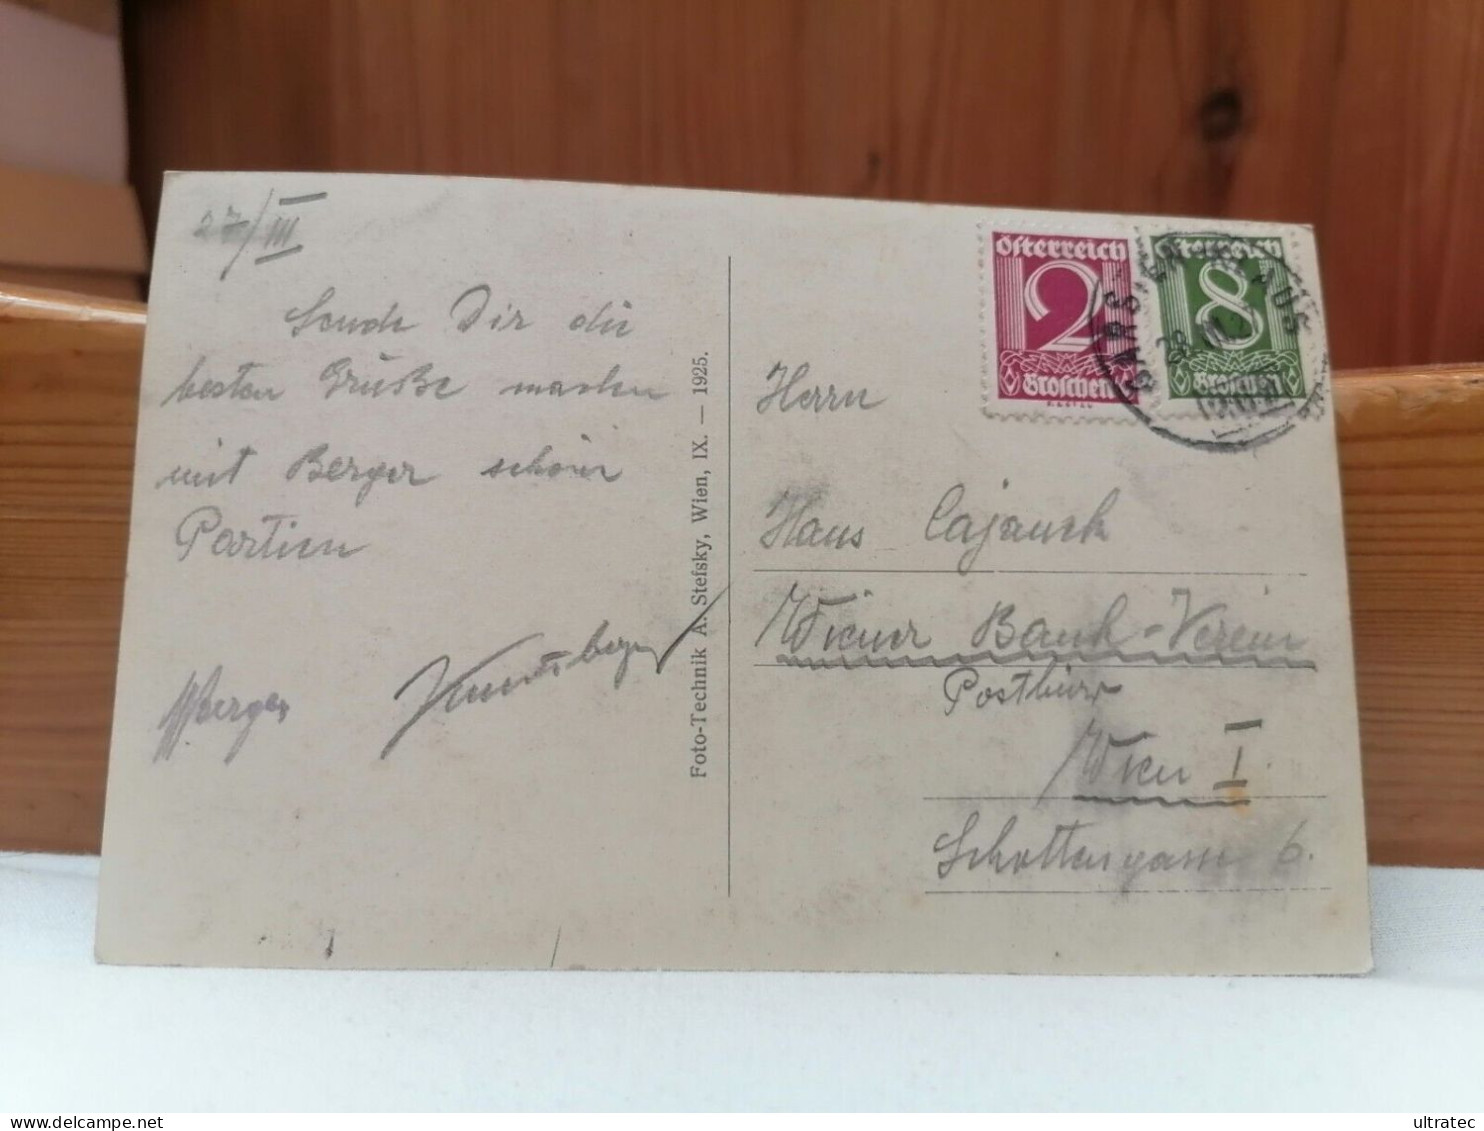 27/III
Sende Dir die
besten Grüße machen
mit Berger schöne
Partien
Berger
Foto-Technik A. Stefsky, Wien, IX. — 1925.
Österreich
2
Groschen
Österreich
8
Groschen
28. III. 2
Herrn
Hans Cajanek
Wiener Bank-Verein
Postbüro
Wien I.
Schottengasse 6.
ultratec